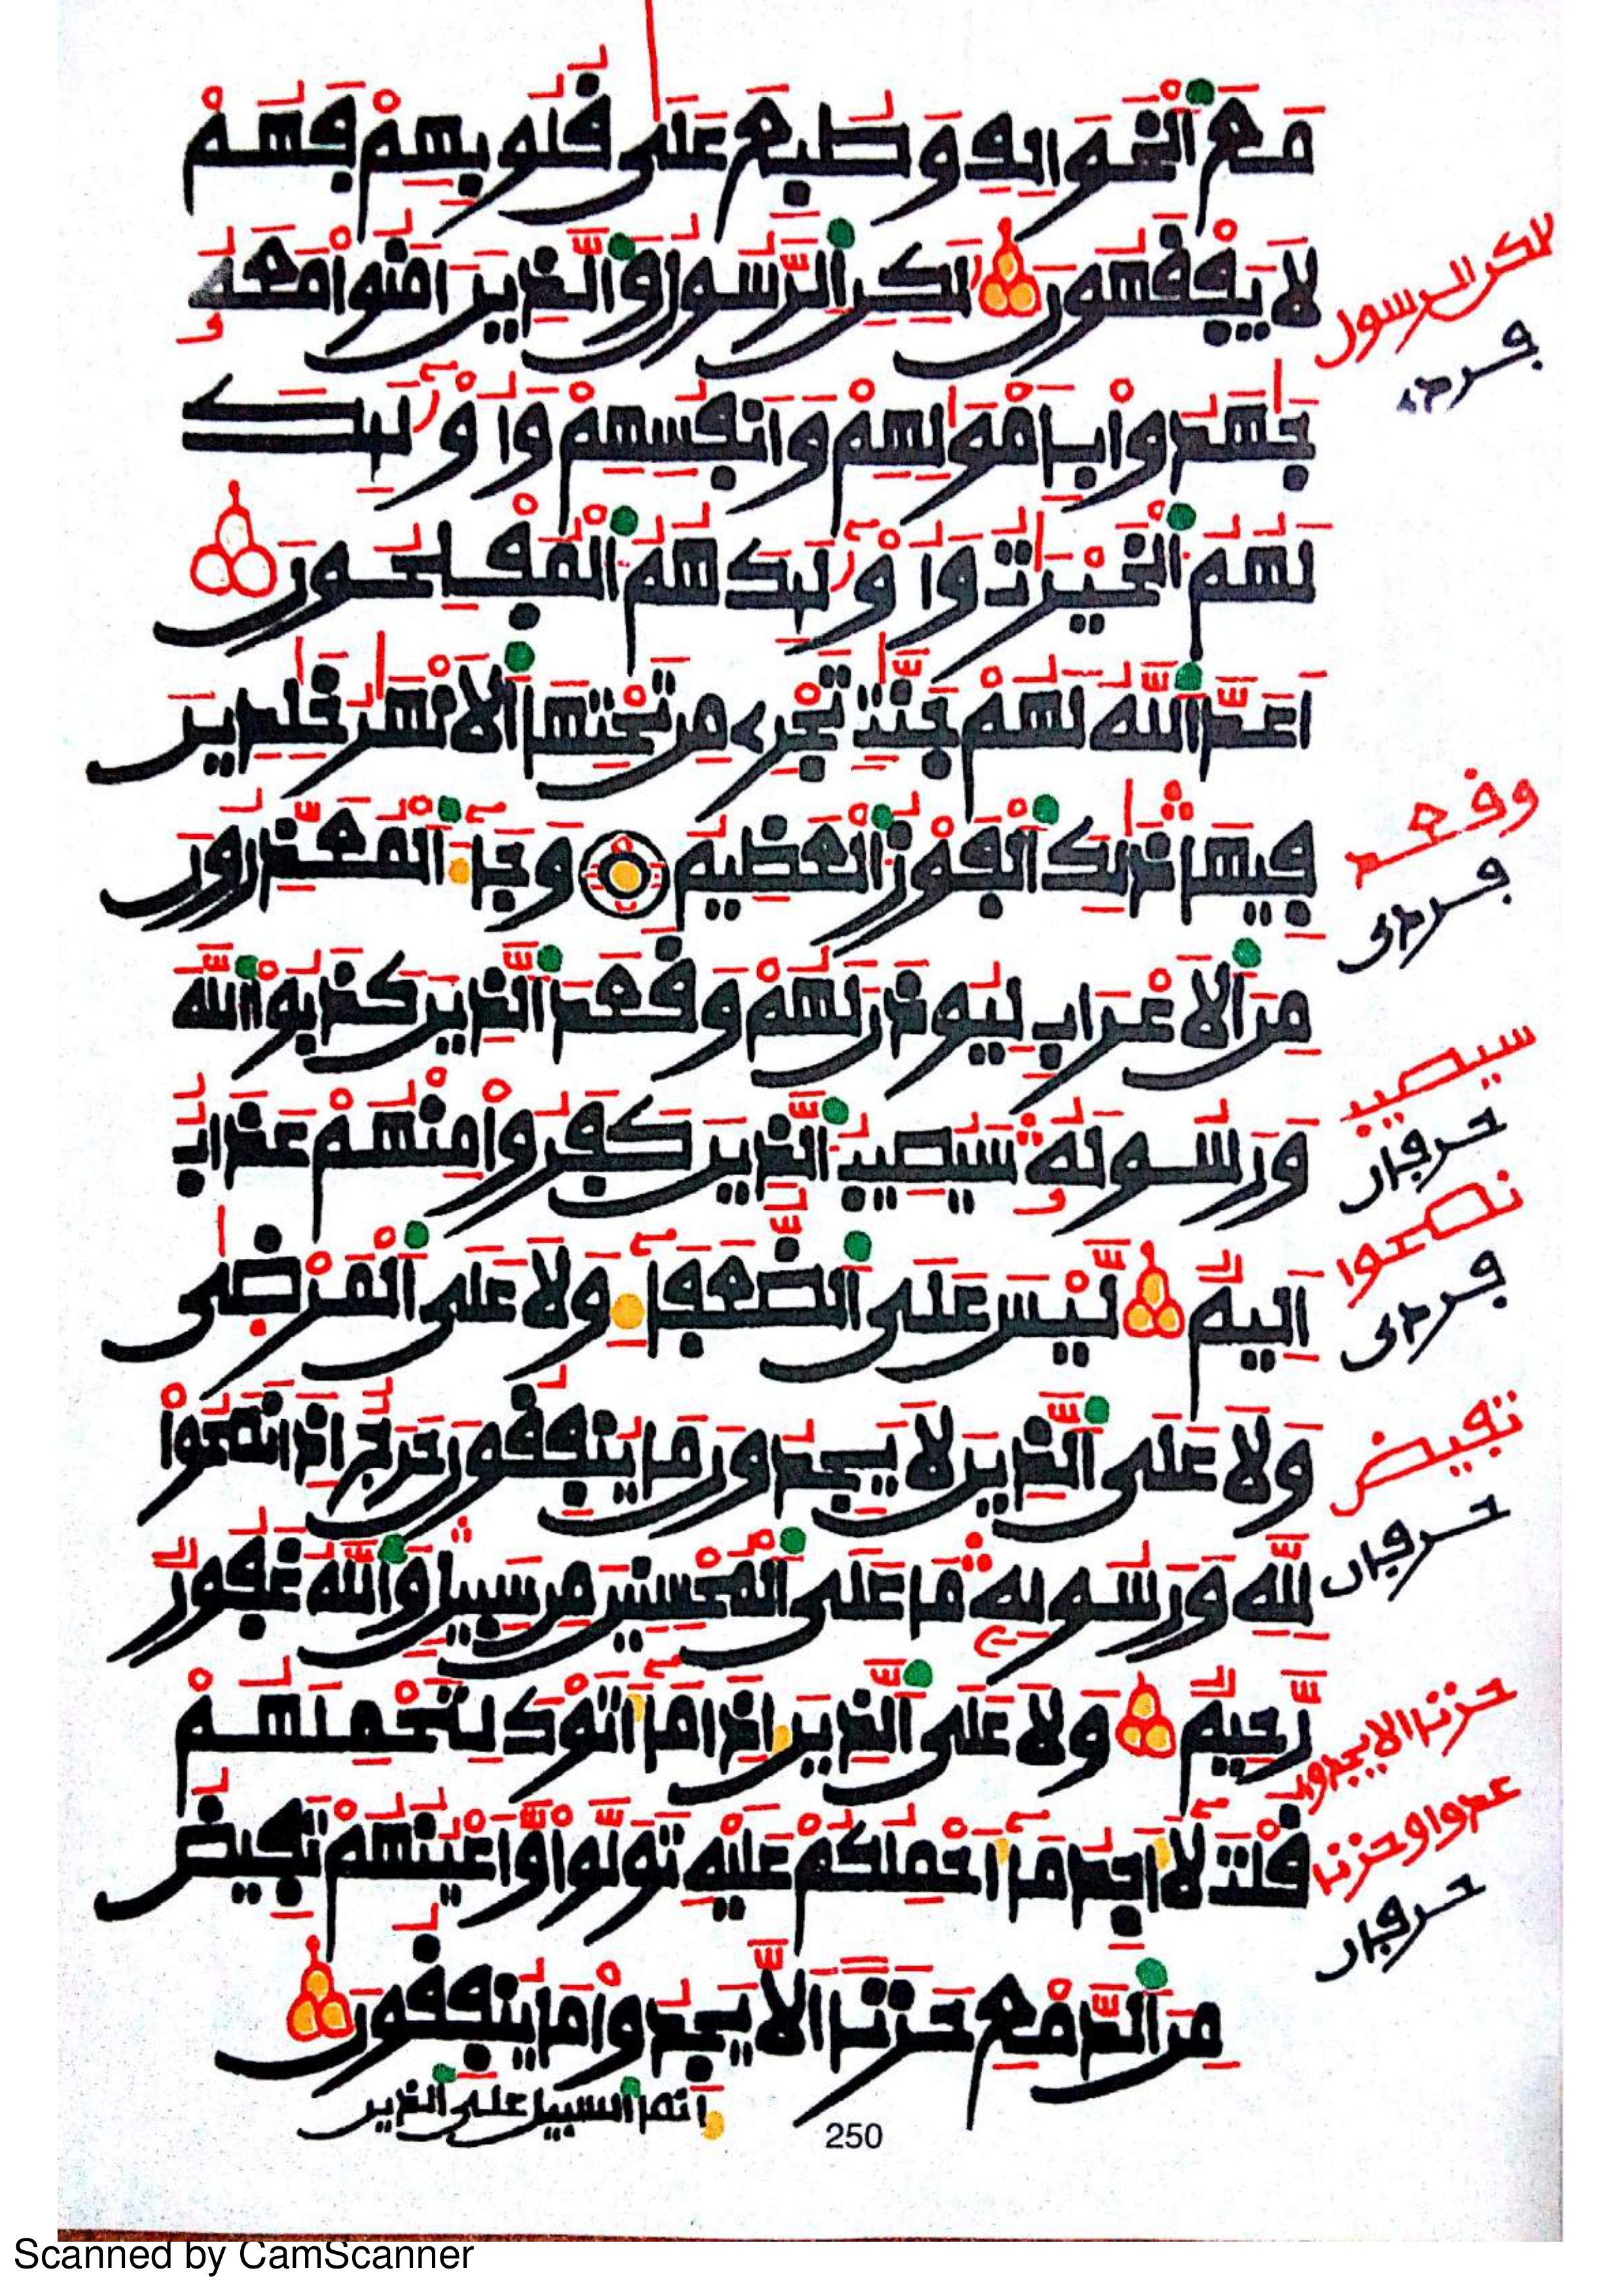 مَعَ اَلْخَوَالِفِ وَطُبِعَ عَلَىٰ قُلُوبِهِمْ فَهُمْ
لَا يَفْقَهُونَ لَٰكِنِ اِلرَّسُولُ وَالَّذِينَ ءَامَنُواْ مَعَهُۥ
جَٰهَدُواْ بِأَمْوَٰلِهِمْ وَأَنفُسِهِمْ وَأُوْلَٰٓئِكَ
لَهُمُ اَلْخَيْرَٰتُ وَأُوْلَٰٓئِكَ هُمُ اُلْمُفْلِحُونَ
أَعَدَّ اَللَّهُ لَهُمْ جَنَّٰتٍ تَجْرِے مِن تَحْتِهَا اَلْأَنْهَٰرُ خَٰلِدِينَ
فِيهَا ذَٰلِكَ اَلْفَوْزُ اُلْعَظِيمُ وَجَآءَ اَلْمُعَذِّرُونَ
مِنَ اَلْأَعْرَابِ لِيُوذَنَ لَهُمْ وَقَعَدَ اَلَّذِينَ كَذَبُواْ اُللَّهَ
وَرَسُولَهُۥ سَيُصِيبُ اُلَّذِينَ كَفَرُواْ مِنْهُمْ عَذَابٌ
أَلِيمٌ لَّيْسَ عَلَى اَلضُّعَفَآءِ وَلَا عَلَى اَلْمَرْضَىٰ
وَلَا عَلَى اَلَّذِينَ لَا يَجِدُونَ مَا يُنفِقُونَ حَرَجٌ إِذَا نَصَحُواْ
لِلَّهِ وَرَسُولِهِۦ مَا عَلَى اَلْمُحْسِنِينَ مِن سَبِيلٍ وَاللَّهُ غَفُورٌ
رَّحِيمٌ وَلَا عَلَى اَلَّذِينَ إِذَا مَآ أَتَوْكَ لِتَحْمِلَهُمْ
قُلْتَ لَآ أَجِدُ مَآ أَحْمِلُكُمْ عَلَيْهِ تَوَلَّواْ وَّأَعْيُنُهُمْ تَفِيضُ
مِنَ اَلدَّمْعِ حَزَناً اَلَّا يَجِدُواْ مَا يُنفِقُونَ
اِنَّمَا اَلسَّبِيلُ عَلَى اَلَّذِينَ
250
لكن الرسول
وقعد
سيصيب
حرفان
نصحوا
تفيض
حرفان
حزنا الا يجدوا
حرفان
Scanned by CamScanner